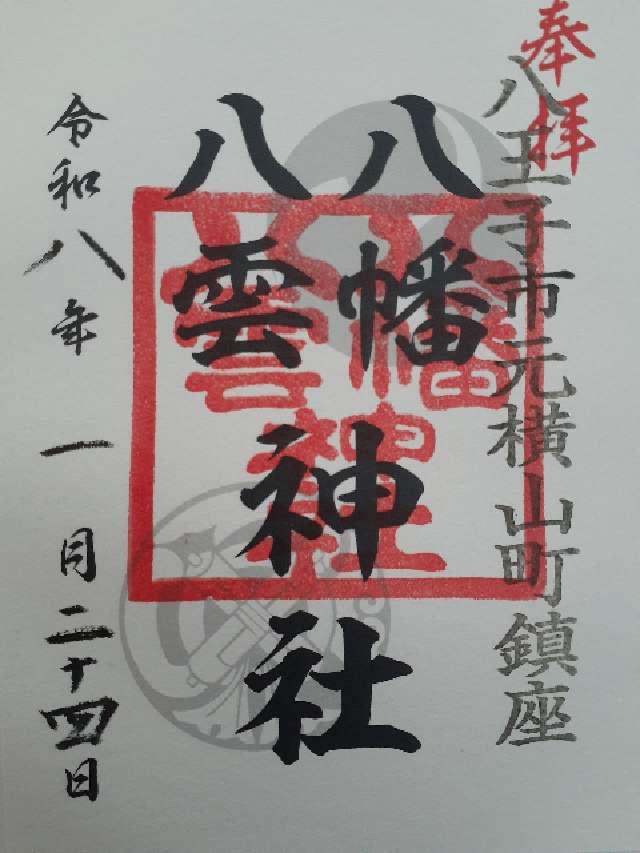 奉拝
八王子市元横山町鎮座
八幡
八雲
神社
八幡
八雲
神社
令和八年一月二十四日